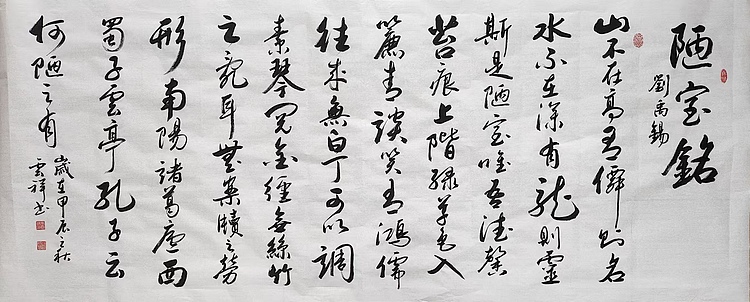 陋室銘
劉禹錫
山不在高有僊則名
水不在深有龍則靈
斯是陋室唯吾德馨
苔痕上階綠草色入
簾青談笑有鴻儒
往來無白丁可以調
素琴閱金經無絲竹
之亂耳無案牘之勞
形南陽諸葛廬西
蜀子雲亭孔子云
何陋之有
歲在甲辰之秋
雲祥书